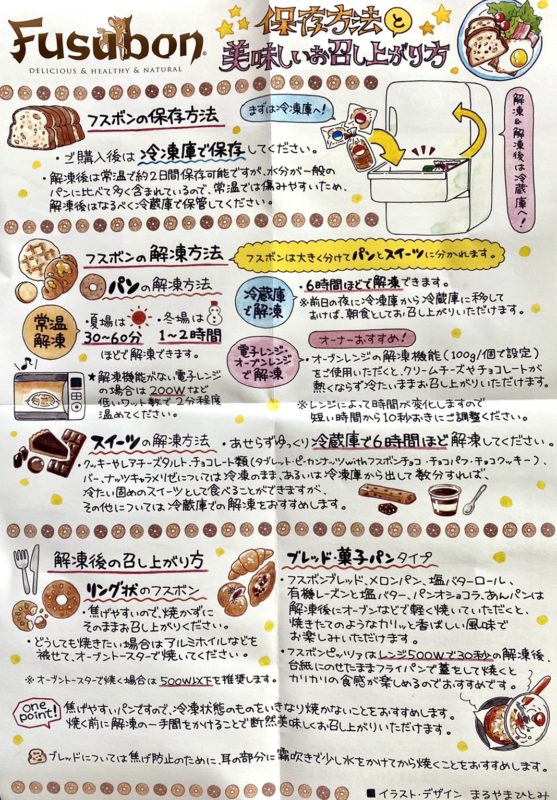 Fusubon®
DELICIOUS & HEALTHY & NATURAL
保存方法と
美味しいお召し上がり方
フスボンの保存方法
まずは冷凍庫へ!
解凍&解凍後は冷蔵庫へ!
・ご購入後は冷凍庫で保存してください。
・解凍後は常温で約2日間保存可能ですが、水分が一般の
パンに比べて多く含まれているので、常温では傷みやすいため、
解凍後はなるべく冷蔵庫で保管してください。
フスボンの解凍方法
フスボンは大きく分けてパンとスイーツに分かれます。
パンの解凍方法
常温解凍
・夏場は ・冬場は
30~60分 1~2時間
ほどで解凍できます。
冷蔵庫で解凍
・6時間ほどで解凍できます。
※前日の夜に冷凍庫から冷蔵庫に移して
おけば、朝食としてお召し上がりいただけます。
★解凍機能がない電子レンジ
の場合は200Wなど
低いワット数で2分程度
温めてください。
電子レンジ・
オーブンレンジ
で解凍
オーナーおすすめ!
・オーブンレンジの解凍機能(100g/1個で設定)
をご使用いただくと、クリームチーズやチョコレートが
熱くならず冷たいままお召し上がりいただけます。
※レンジによって時間が変化しますので
短い時間から10秒おきにご調整ください。
スイーツの解凍方法 ・あせらずゆっくり冷蔵庫で6時間ほど解凍してください。
・クッキーやレアチーズタルト、チョコレート類(タブレット・ピーカンナッツwithフスボンチョコ・チョコパフ・チョコクッキー)、
バー、ナッツキャラメリゼについては冷凍のまま、あるいは冷凍庫から出して数分すれば、
冷たい固めのスイーツとして食べることができますが、
その他については冷蔵庫での解凍をおすすめします。
解凍後の召し上がり方
リング状のフスボン
・焦げやすいので、焼かずに
そのままお召し上がりください。
・どうしても焼きたい場合はアルミホイルなどを
被せて、オーブントースターで焼してください。
※オーブントースターで焼く場合は500W以下を推奨します。
ブレッド・菓子パンタイプ
・フスボンブレッド、メロンパン、塩バターロール、
有機レーズンと塩バター、パンオショコラ、あんパンは
解凍後にオーブンなどで軽く焼いていただくと、
焼きたてのようなカリッと香ばしい風味で
お楽しみいただけます。
・フスボンピッツァはレンジ500Wで30秒の解凍後、
台紙にのせたままフライパンで蓋をして焼くと
カリカリの食感が楽しめるのでおすすめです。
one point!
焦げやすいパンですので、冷凍状態のものをいきなり焼かないことをおすすめします。
焼く前に解凍の一手間をかけることで断然美味しくお召し上がりいただけます。
ブレッドについては焦げ防止のために、耳の部分に霧吹きで少し水をかけてから焼くことをおすすめします。
■イラスト・デザイン まるやまひとみ